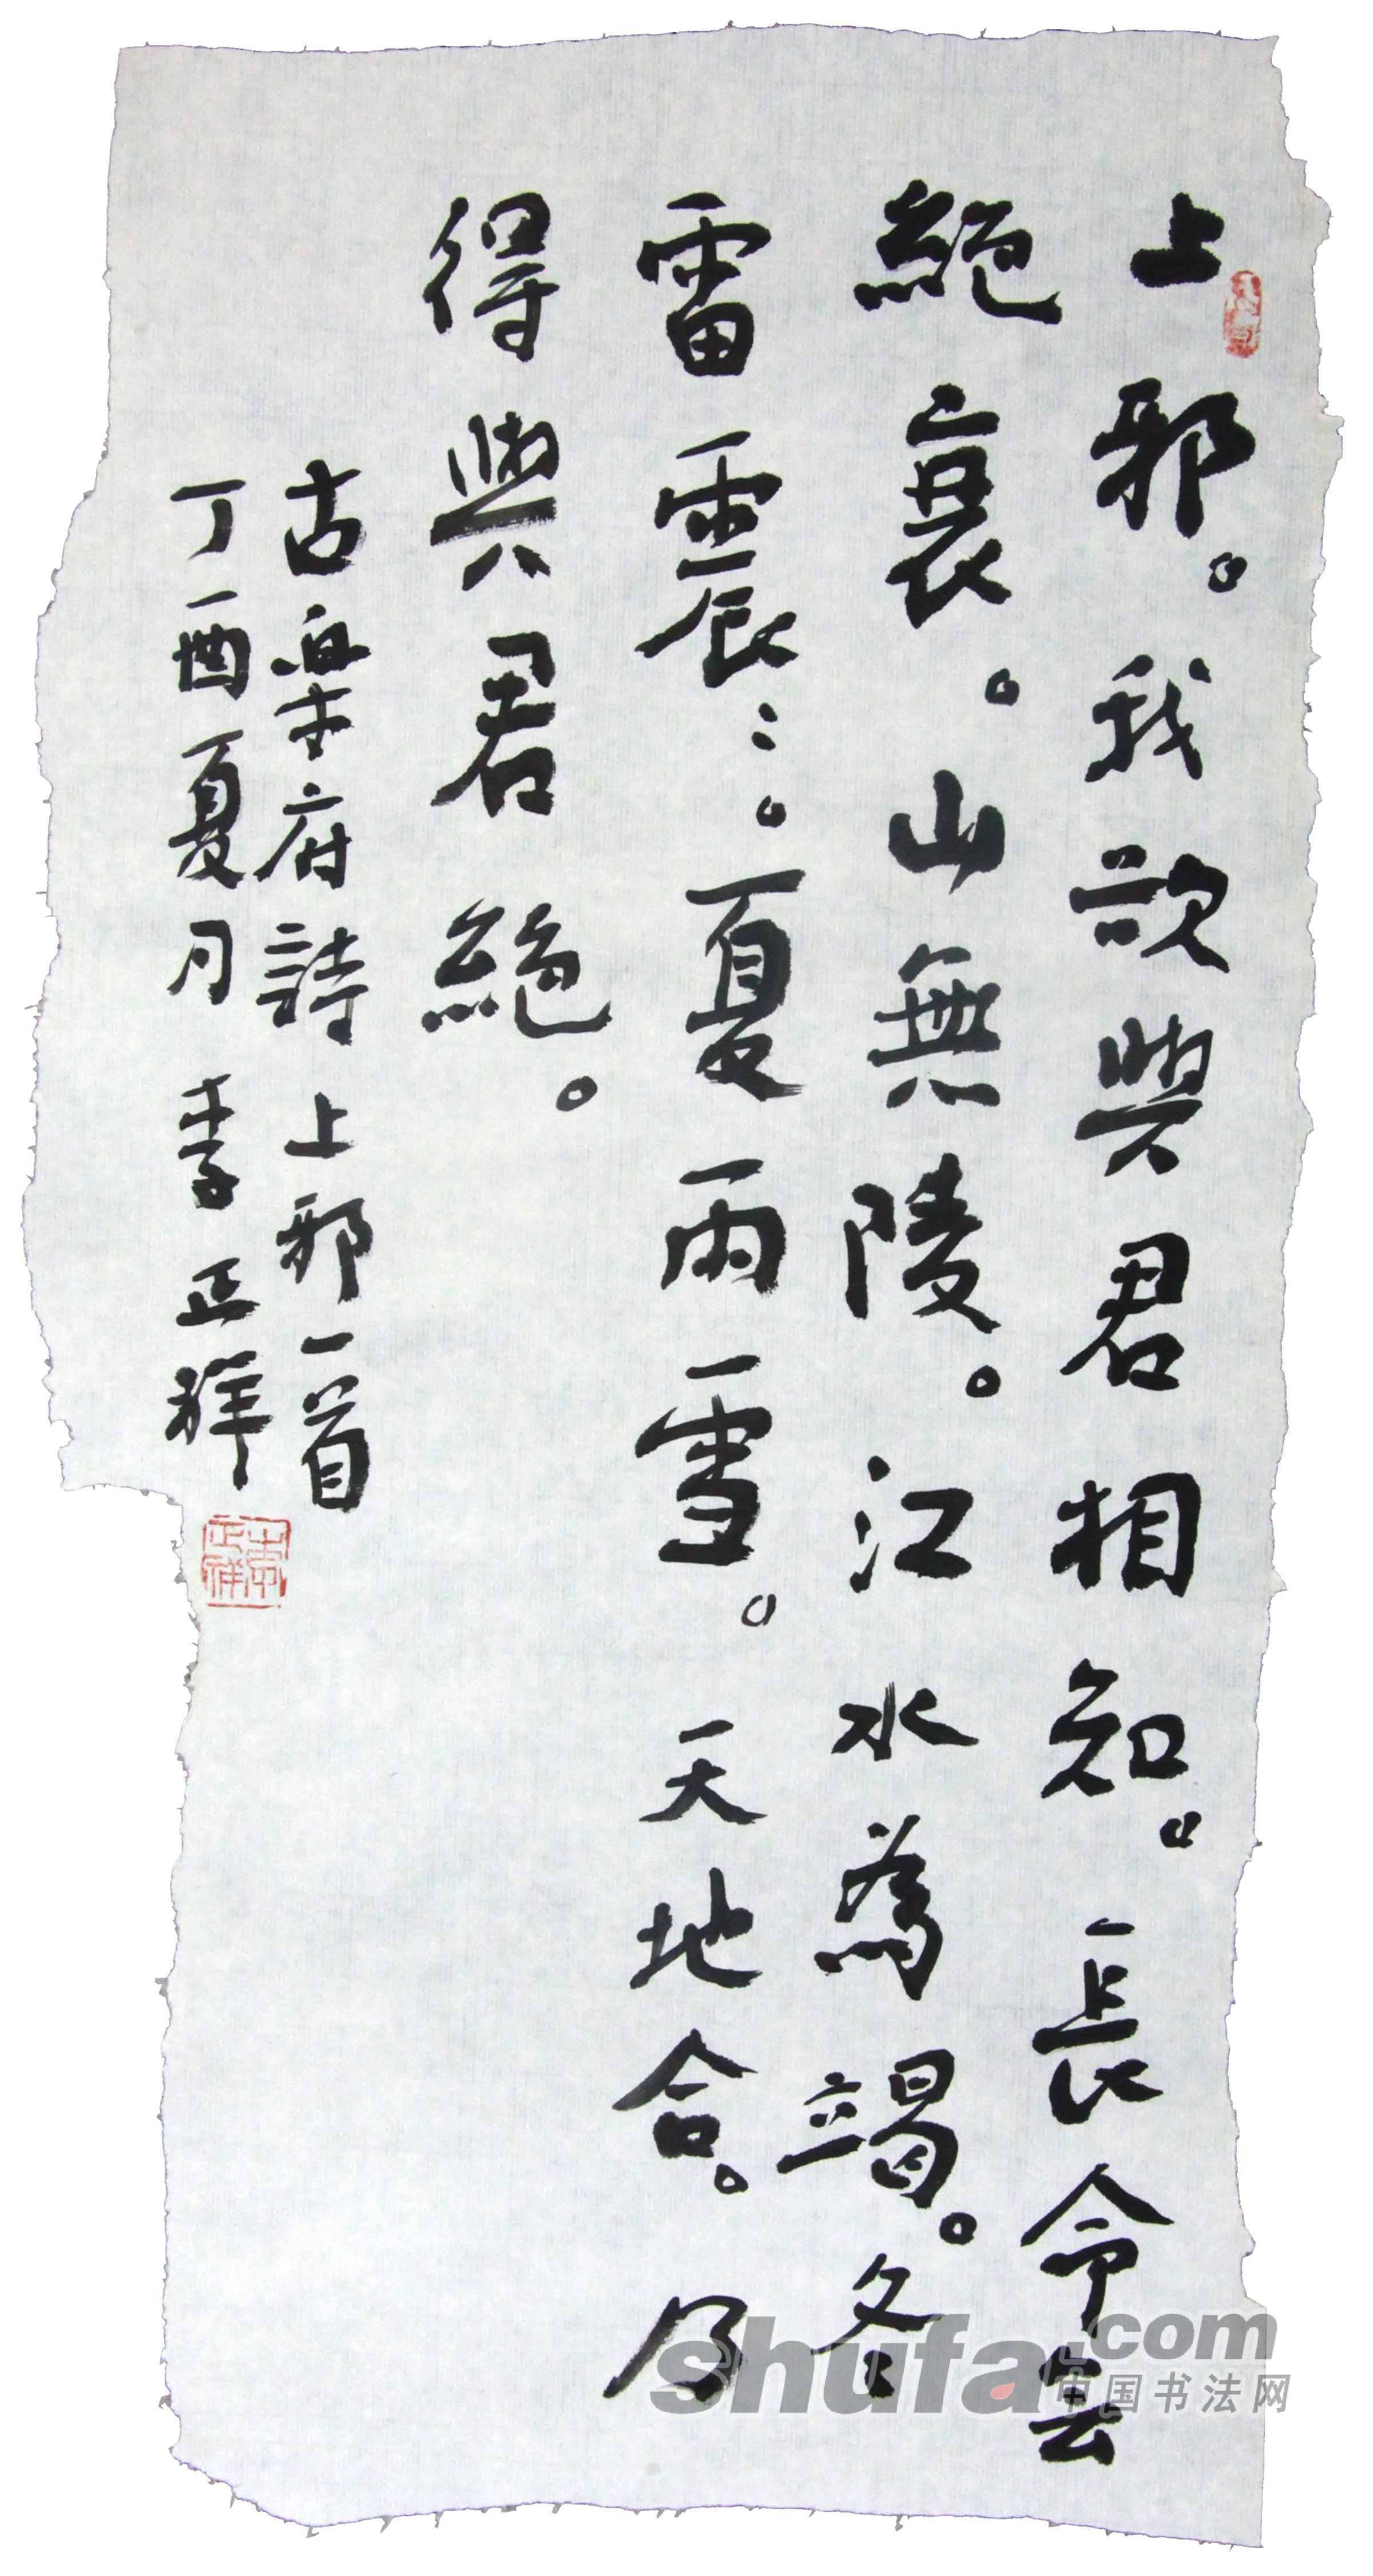 上邪。我欲與君相知。長命無
絕衰。山無陵。江水為竭。冬
雷震〻。夏雨雪。天地合。乃
得與君絕。
古樂府詩上邪一首
丁酉夏月 李正祥
李正祥
shufa.com
中国书法网